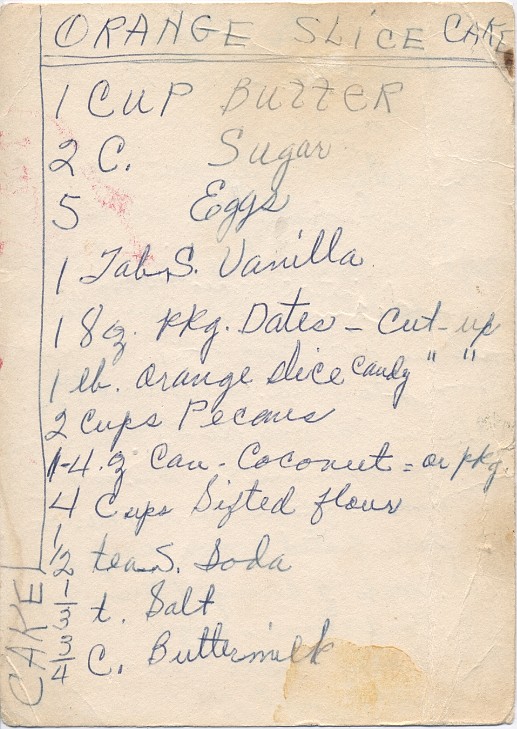 ORANGE SLICE CAKE
1 CUP BUTTER
2 C. Sugar
5 Eggs
1 Tab. S. Vanilla
1 8 oz. pkg. Dates - Cut-up
1 lb. orange slice candy " "
2 cups Pecans
1-4 oz Can - Coconut = or pkg.
4 Cups Sifted flour
1/2 tea. S. Soda
1/3 t. Salt
3/4 C. Buttermilk
CAKE